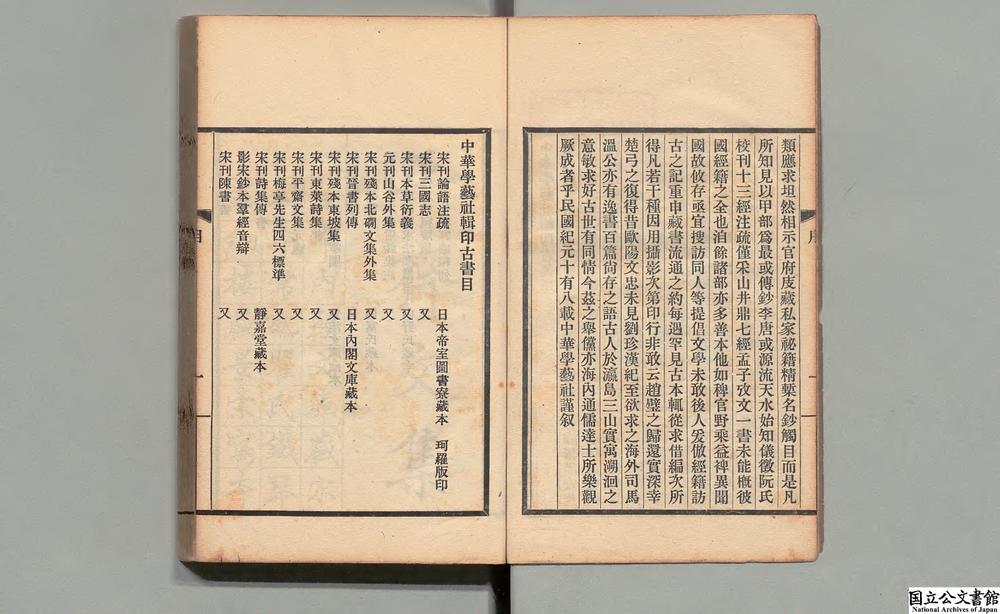 類應求坦然相示官府庋藏私家祕籍精槧名鈔觸目而是凡
所知見以甲部爲最或傳鈔李唐或源流天水始知儀徵阮氏
校刊十三經注疏僅采山井鼎七經孟子攷文一書未能槪彼
國經籍之全也洎餘諸部亦多善本他如稗官野乘益裨異聞
國故攸存亟宜搜訪同人等提倡文學未敢後人爰倣經籍訪
古之記重申藏書流通之約每遇罕見古本輒從求借編次所
得凡若干種因用攝影次第印行非敢云趙璧之歸還實深幸
楚弓之復得昔歐陽文忠未見劉珍漢紀至欲求之海外司馬
溫公亦有逸書百篇尙存之語古人於瀛島三山實寓溯洄之
意敏求好古世有同情今茲之舉儻亦海內通儒達士所樂觀
厥成者乎民國紀元十有八載中華學藝社謹叙
中華學藝社輯印古書目
宋刊論語注疏 日本帝室圖書寮藏本 珂羅版印
宋刊三國志 又
宋刊本草衍義 又
元刊山谷外集 又
宋刊殘本北磵文集外集 又
宋刊晉書列傳 日本內閣文庫藏本
宋刊殘本東坡集 又
宋刊東萊詩集 又
宋刊平齋文集 又
宋刊梅亭先生四六標準 又
宋刊詩集傳 靜嘉堂藏本
影宋鈔本羣經音辯 又
宋刊陳書 又
国立公文書館
National Archives of Japan